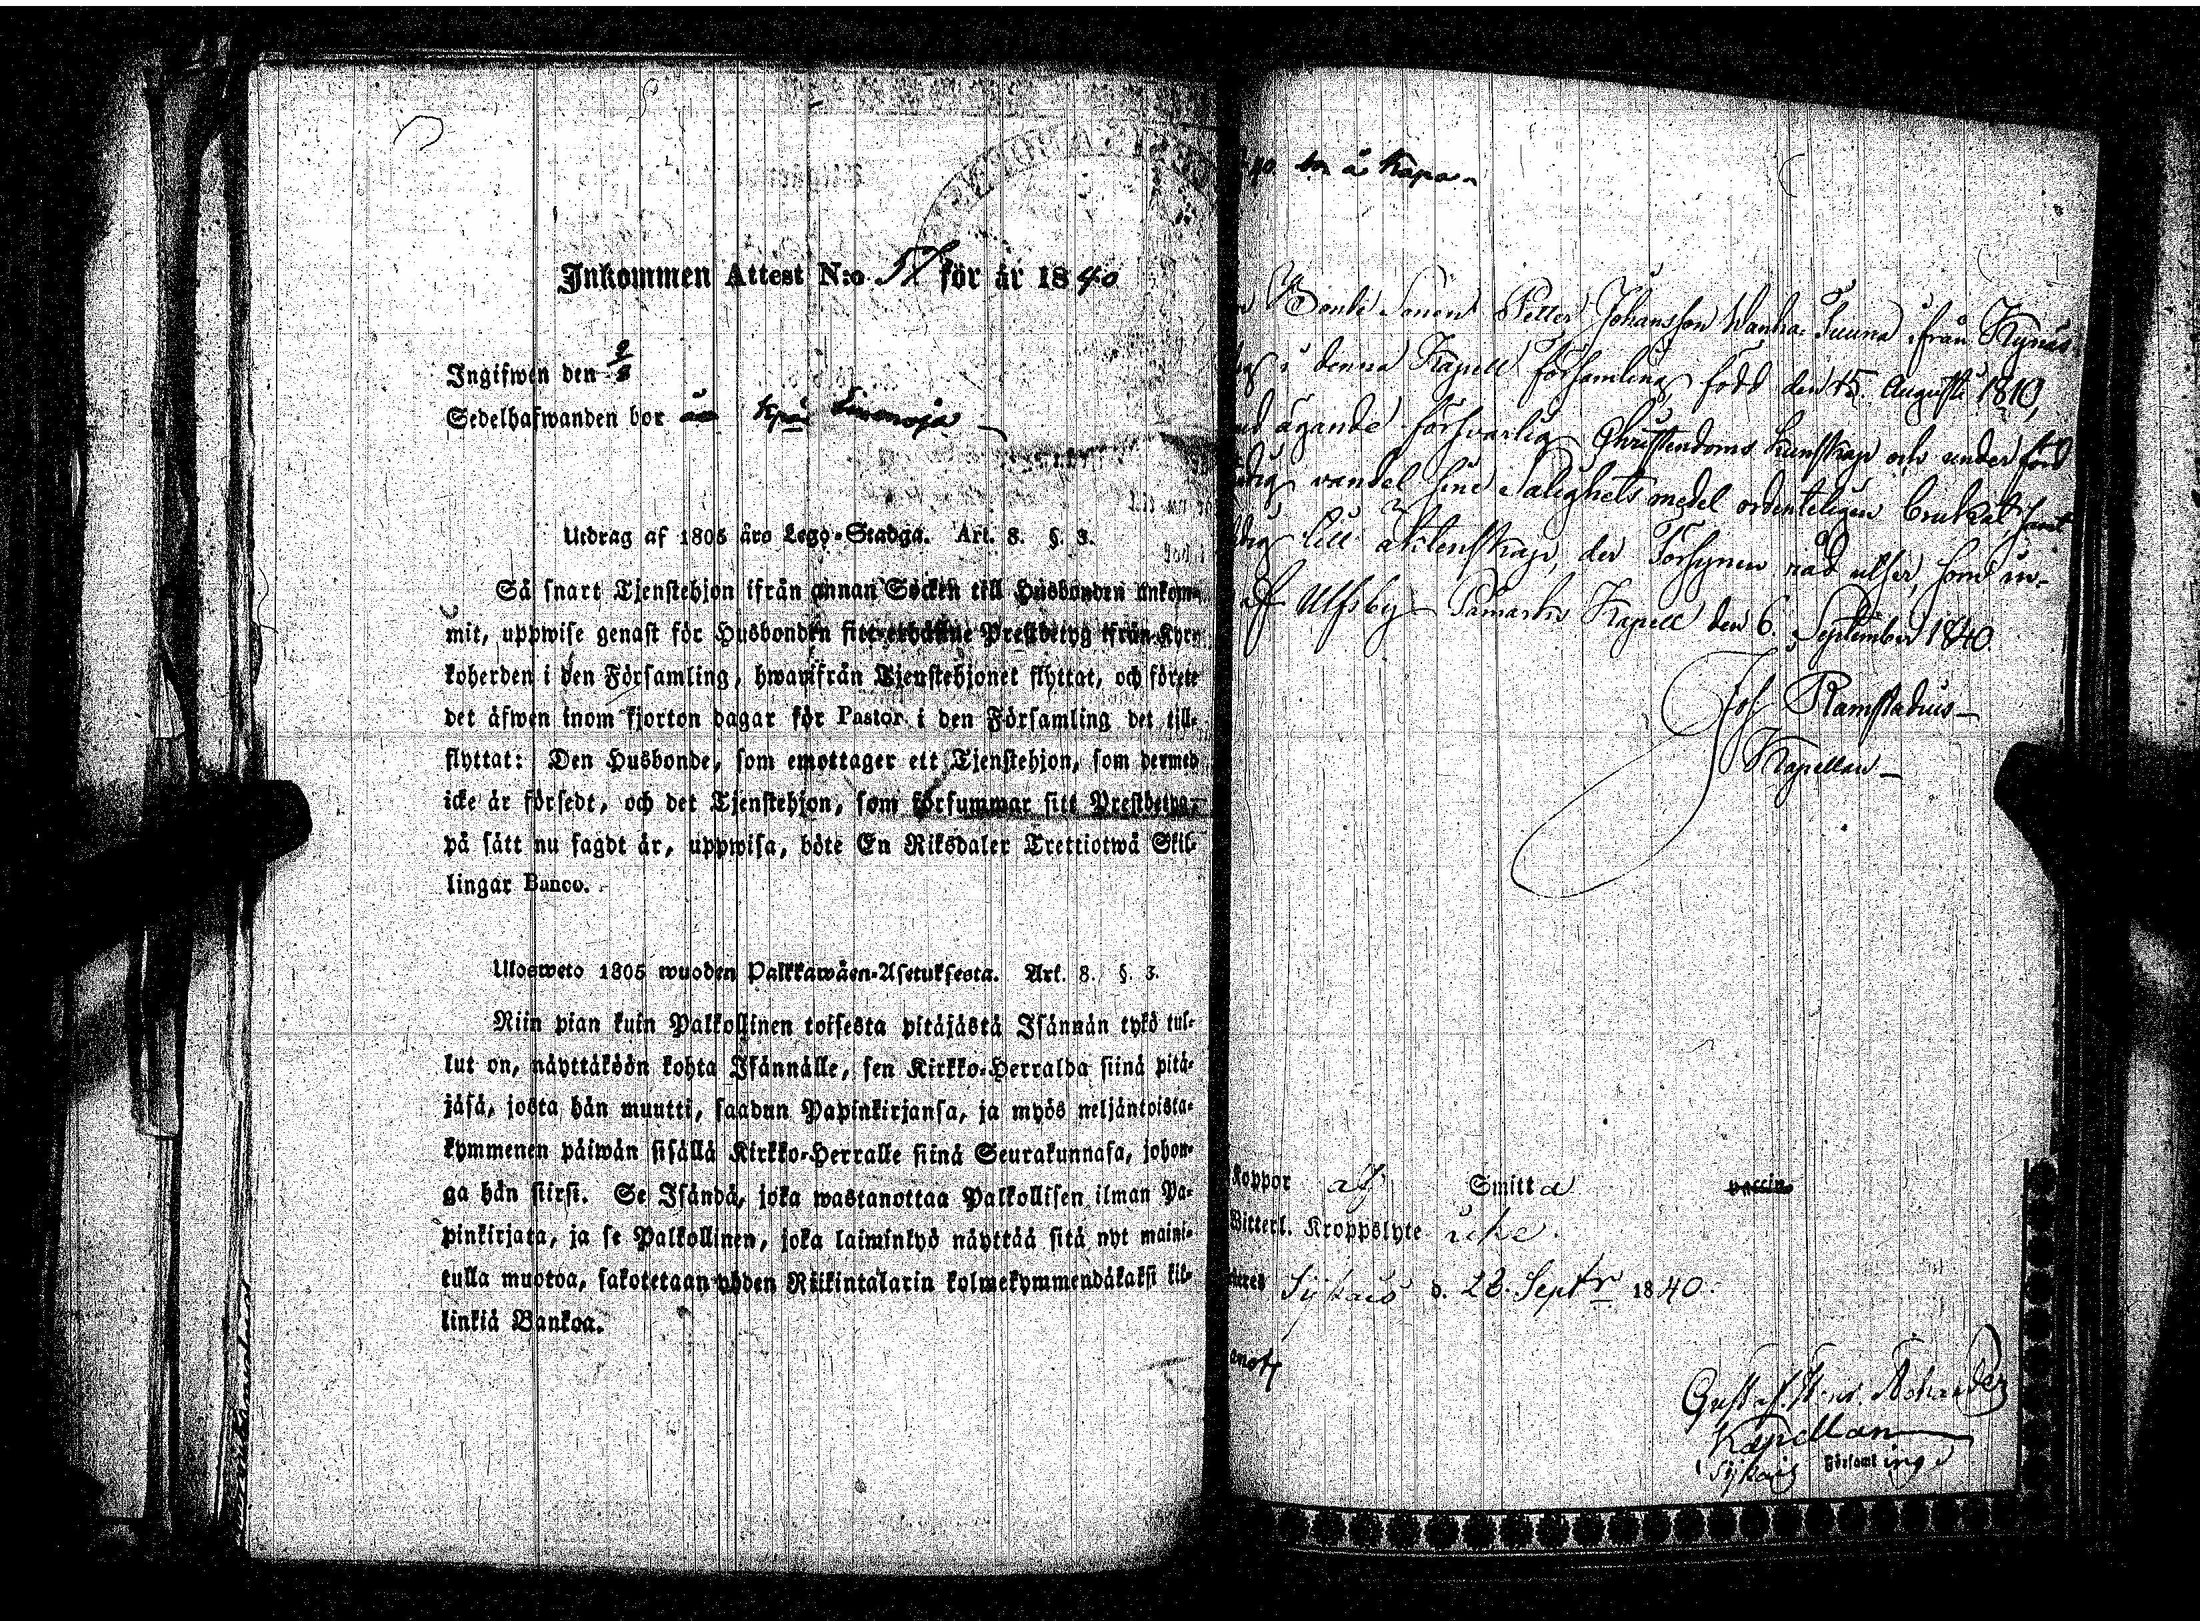 Inkommen Attest N:o 57 för år 1840
Ingifwen den
Sedelhafwanden bor
Utdrag af 1805 års Lego-Stadga. Art. 8. §. 3.
Så snart Tjenstehjon ifrån annan Socken till Husbonden ankom-
mit, uppwise genast för Husbonden sitt erhållne Prestbetyg ifrån Kyr-
koherden i den Församling, hwarifrån Tjenstehjonet flyttat, och förete
det äfwen inom fjorton dagar för Pastor i den Församling det till-
flyttat: Den Husbonde, som emottager ett Tjenstehjon, som dermed
icke är försedt, och det Tjenstehjon, som försummar sitt Prestbetyg
på sätt nu sagdt är, uppwisa, böte En Riksdaler Trettiotwå Skil-
lingar Banco.
Ulosweto 1805 wuoden Palkkawäen-Asetuksesta. Art. 8. §. 3.
Niin pian kuin Palkollinen toisesta pitäjästä Isännän tykö tul-
lut on, näyttäköön kohta Isännälle, sen Kirkko-Herralda siinä pitä-
jäsä, josta hän muutti, saadun Papinkirjansa, ja myös neljäntoista-
kymmenen päiwän sisällä Kirkko-Herralle siinä Seurakunnasa, johon-
ga hän siirsi. Se Isändä, joka wastanottaa Palkollisen ilman Pa-
pinkirjata, ja se Palkollinen, joka laiminlyö näyttää sitä nyt maini-
tulla muotoa, sakotetaan yhden Riikintalarin kolmekymmendäkaksi kil-
linkiä Bankoa.
40. bor å Kapa
Bonde Sonen Petter Johansson Wanha Tuuna ifrån Kynäs-
i denna Kapell Församling, född den 15. Augusti 1810,
ägande försvarlig Christendoms kunskap och under
vandel sine Salighets medel ordenteligen brukat samt
till äktenskap, der Försynen råd utser, som in-
af Ulfsby Påmarks Kapell den 6. September 1840.
Joh Ramstadius
Kapellan
koppor af Smitta
Witterl. Kroppslyte icke.
Sijkais d. 28. Septr 1840.
Kapellan
Sijkais Församling